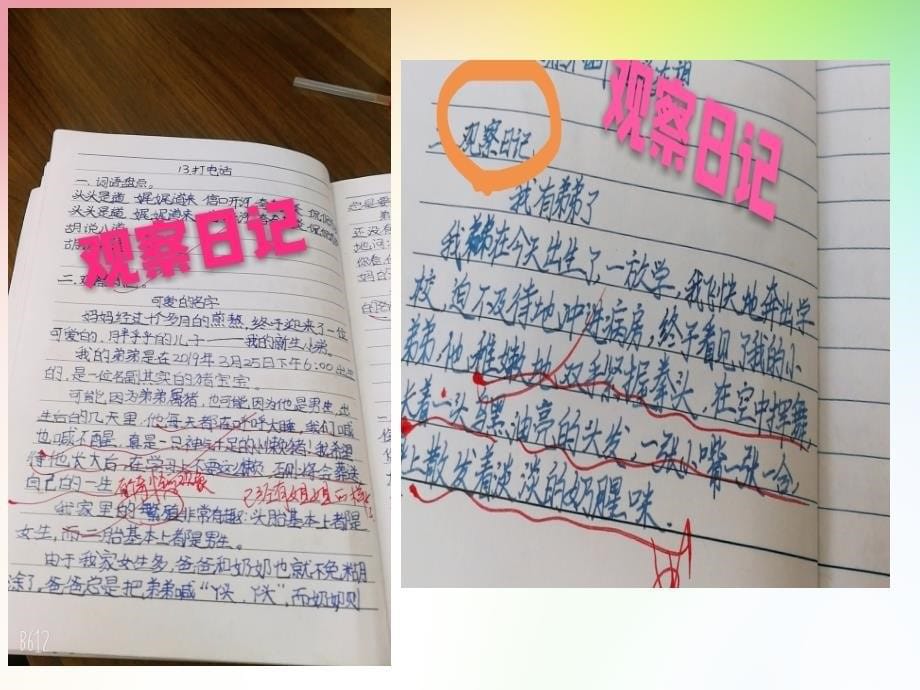 13打电话
一.词语盘点。
头头是道 娓娓道来 信口开河
头头是道 娓娓道来
胡说八道
观察日记
可爱的名字
妈妈经过十个多月的煎熬,终于迎来了一位
可爱的,胖乎乎的儿子——我的新生小弟。
我的弟弟是在2019年3月25日下午6:00出
的,是一位名副其实的猪宝宝。
可能,因为弟弟属猪,也可能因为他是男生,出
生后的几天里,他每天都在呼呼大睡,我们喊
也喊不醒,真是一只神气十足的小懒猪!我希望
等他长大后,在学习上不要这么懒,否则将会葬送
自己的一生。
已经有姐姐的样
我家里的 非常有趣:头胎基本上都是
女生,而二胎基本上都是男生。
由于我家女生多,爸爸和奶奶也就不免糊
涂了,爸爸总是把弟弟喊“丫头,丫头”,而奶奶则
B612
观察日记
二.观察日记。
我有弟弟了
我弟弟在今天出生了一放学,我飞快地奔出学
校,迫不及待地冲进病房,终于看见了我的小
弟弟,他稚嫩地双手紧握拳头,在空中挥舞
长着一头乌黑油亮的头发,一张小嘴一张一合,
上散发着淡淡的奶腥味.